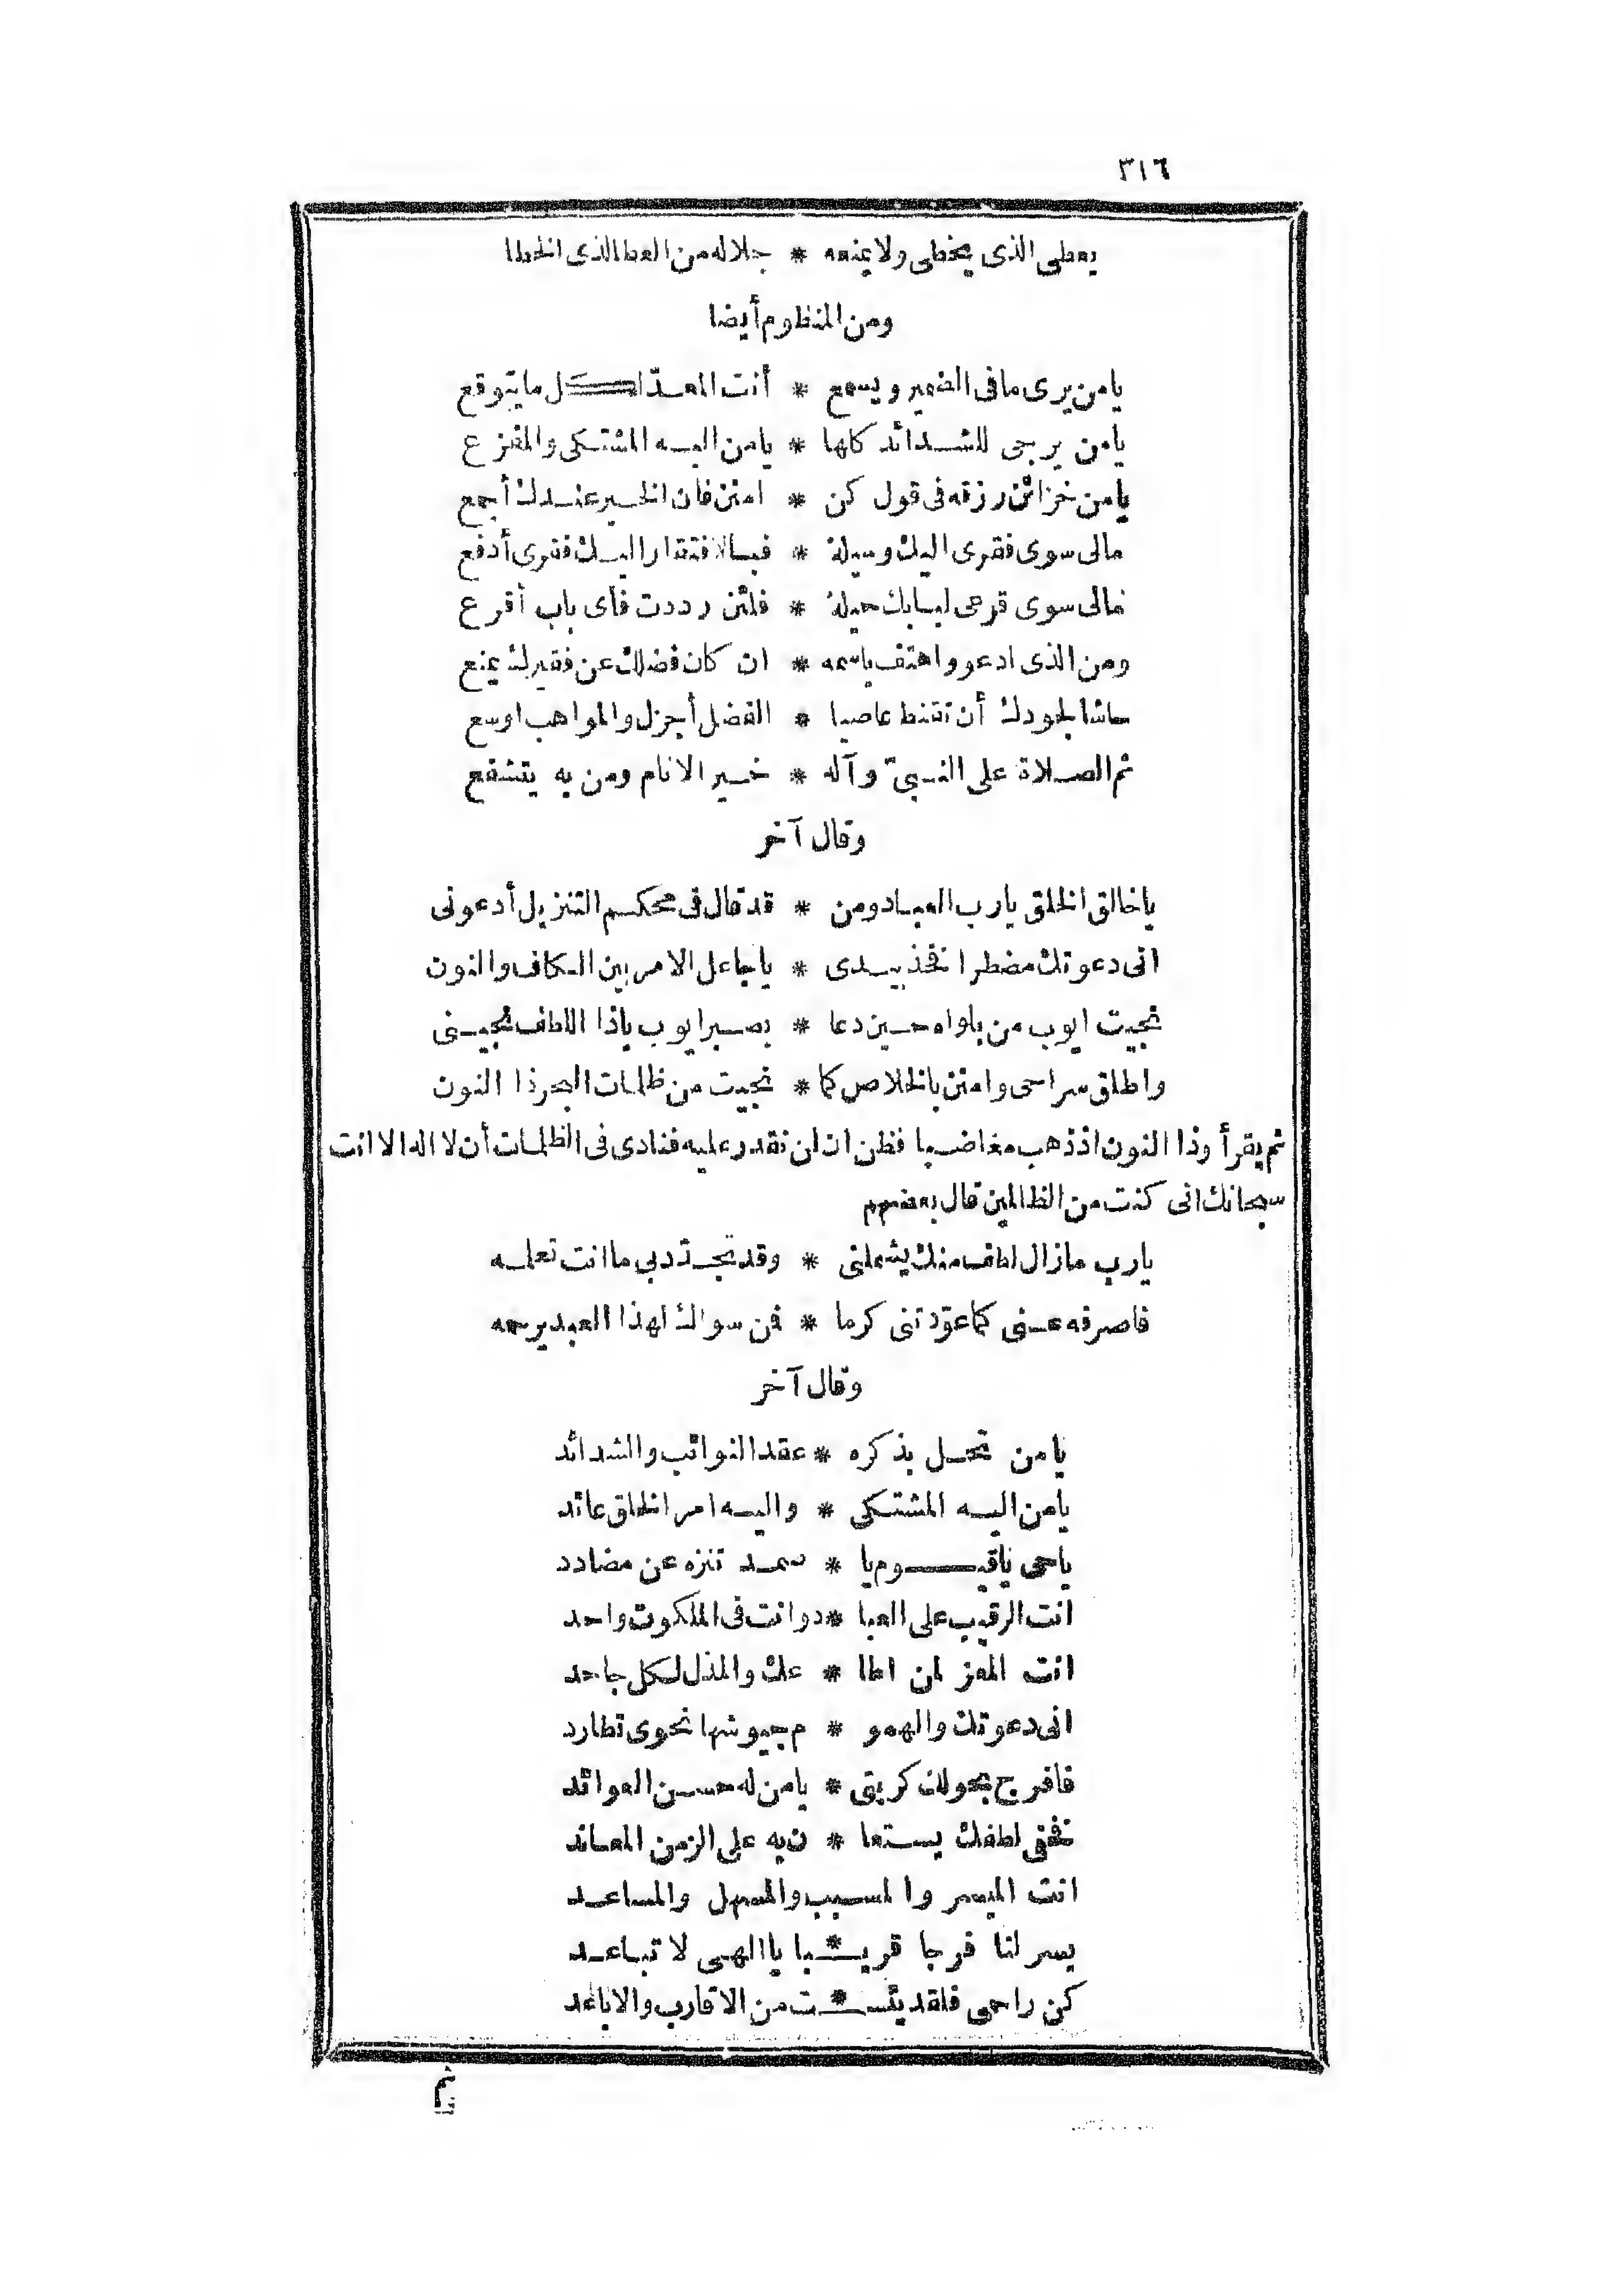 ٣١٦
يعطى الذى يخطى ولا يمنعه * جلاله من العطا لذى الخطا
ومن المنظوم أيضا
يا من يرى ما فى الضمير ويسمع * أنت المعدّ لكل ما يتوقع
يا من يرجى للشدائد كلها * يا من اليه المشتكى والمفزع
يا من خزائن رزقه فى قول كن * امنن فان الخير عندك أجمع
مالى سوى فقرى اليك وسيلة * فبالافتقار اليك فقرى أدفع
مالى سوى قرعى لبابك حيلة * فلئن رددت فأى باب أقرع
ومن الذى ادعو واهتف باسمه * ان كان فضلك عن فقيرك يمنع
حاشا لجودك أن تقنط عاصيا * الفضل أجزل والمواهب اوسع
ثم الصلاة على النبىّ وآله * خير الانام ومن به يتشفع
وقال آخر
يا خالق الخلق يا رب العباد ومن * قد قال فى محكم التنزيل أدعونى
انى دعوتك مضطرا فخذ بيدى * يا جاعل الامر بين الكاف والنون
نجيت ايوب من بلواه حين دعا * بصبر ايوب ياذا اللطف نجينى
واطلق سراحى وامنن بالخلاص كما * نجيت من ظلمات البحر ذا النون
ثم يقرأ وذا النون اذ ذهب مغاضبا فظن ان لن نقدر عليه فنادى فى الظلمات أن لا اله الا انت
سبحانك انى كنت من الظالمين قال بعضهم
يا رب ما زال لطف منك يشملنى * وقد تجدّد بى ما انت تعلمه
فاصرفه عنى كما عوّدتنى كرما * فمن سواك لهذا العبد يرحمه
وقال آخر
يا من تحل بذكره * عقد النوائب والشدائد
يا من اليه المشتكى * واليه امر الخلق عائد
يا حى يا قيوم يا * صمد تنزه عن مضادد
انت الرقيب على العبا * د وانت فى الملكوت واحد
انت المعز لمن اطا * عك والمذل لكل جاحد
انى دعوتك والهمو * م جيوشها نحوى تطارد
فافرج بحولك كربتى * يا من له حسن العوائد
فخفى لطفك يستعا * ن به على الزمن المعاند
انت الميسر والمسبب والمسهل والمساعد
يسر لنا فرجا قريـ * ـبا يا الهى لا تباعد
كن راحمى فلقد يئسـ * ـت من الاقارب والاباعد
ثم